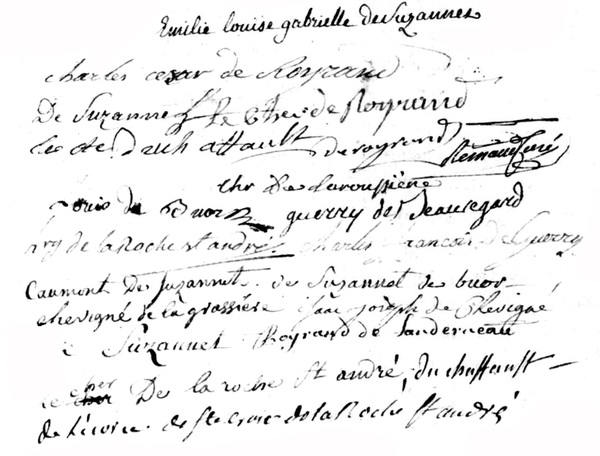 Emilie louise gabrielle de Suzannet
charles cesar de Royrand
De Suzannet Le Cher de Royrand
deroyrand Remaud Curé
Chr De Laroussiere
Louis de Buor guerry de Beauregard
hry de la Roche st andré charles francois de Guerry
Caumont de Suzannet. de Suzannet de buor
chevigné de la grassiere isaac joseph de Chevigné
Suzannet Royrand de
le cher De la roche st andré, du chaffault
de Lécorce. de Ste Croix de la Roche st andré